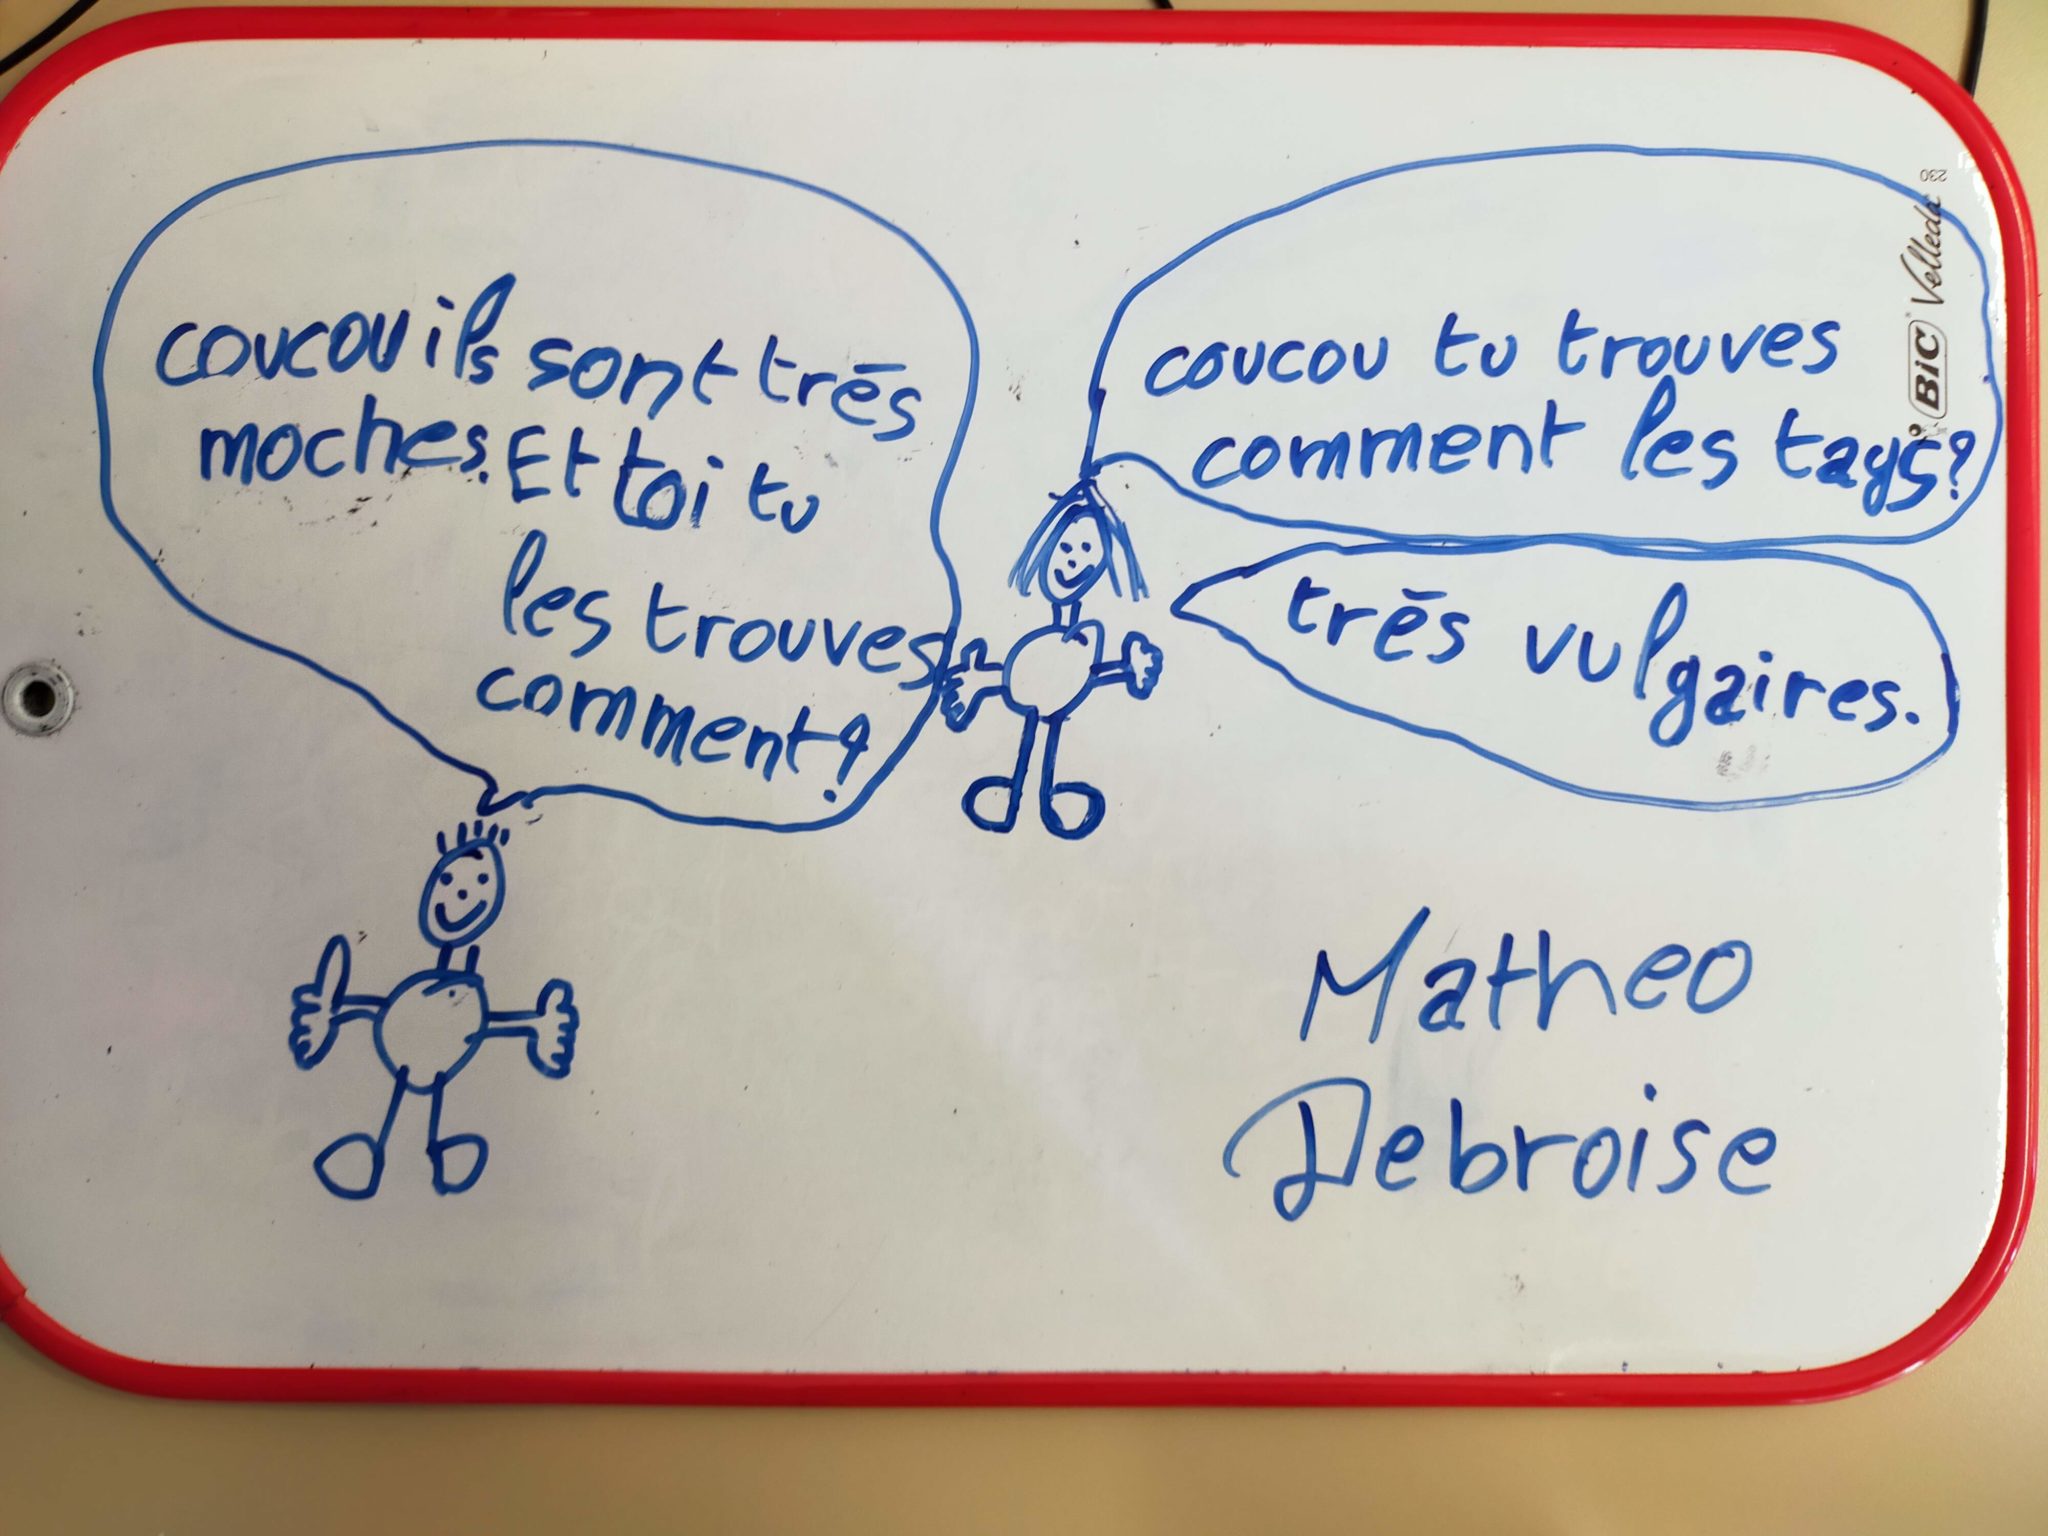 coucou ils sont très
moches. Et toi tu
les trouves
comment?
coucou tu trouves
comment les tags?
très vulgaires.
Matheo
Debroise
BIC Velleda
230